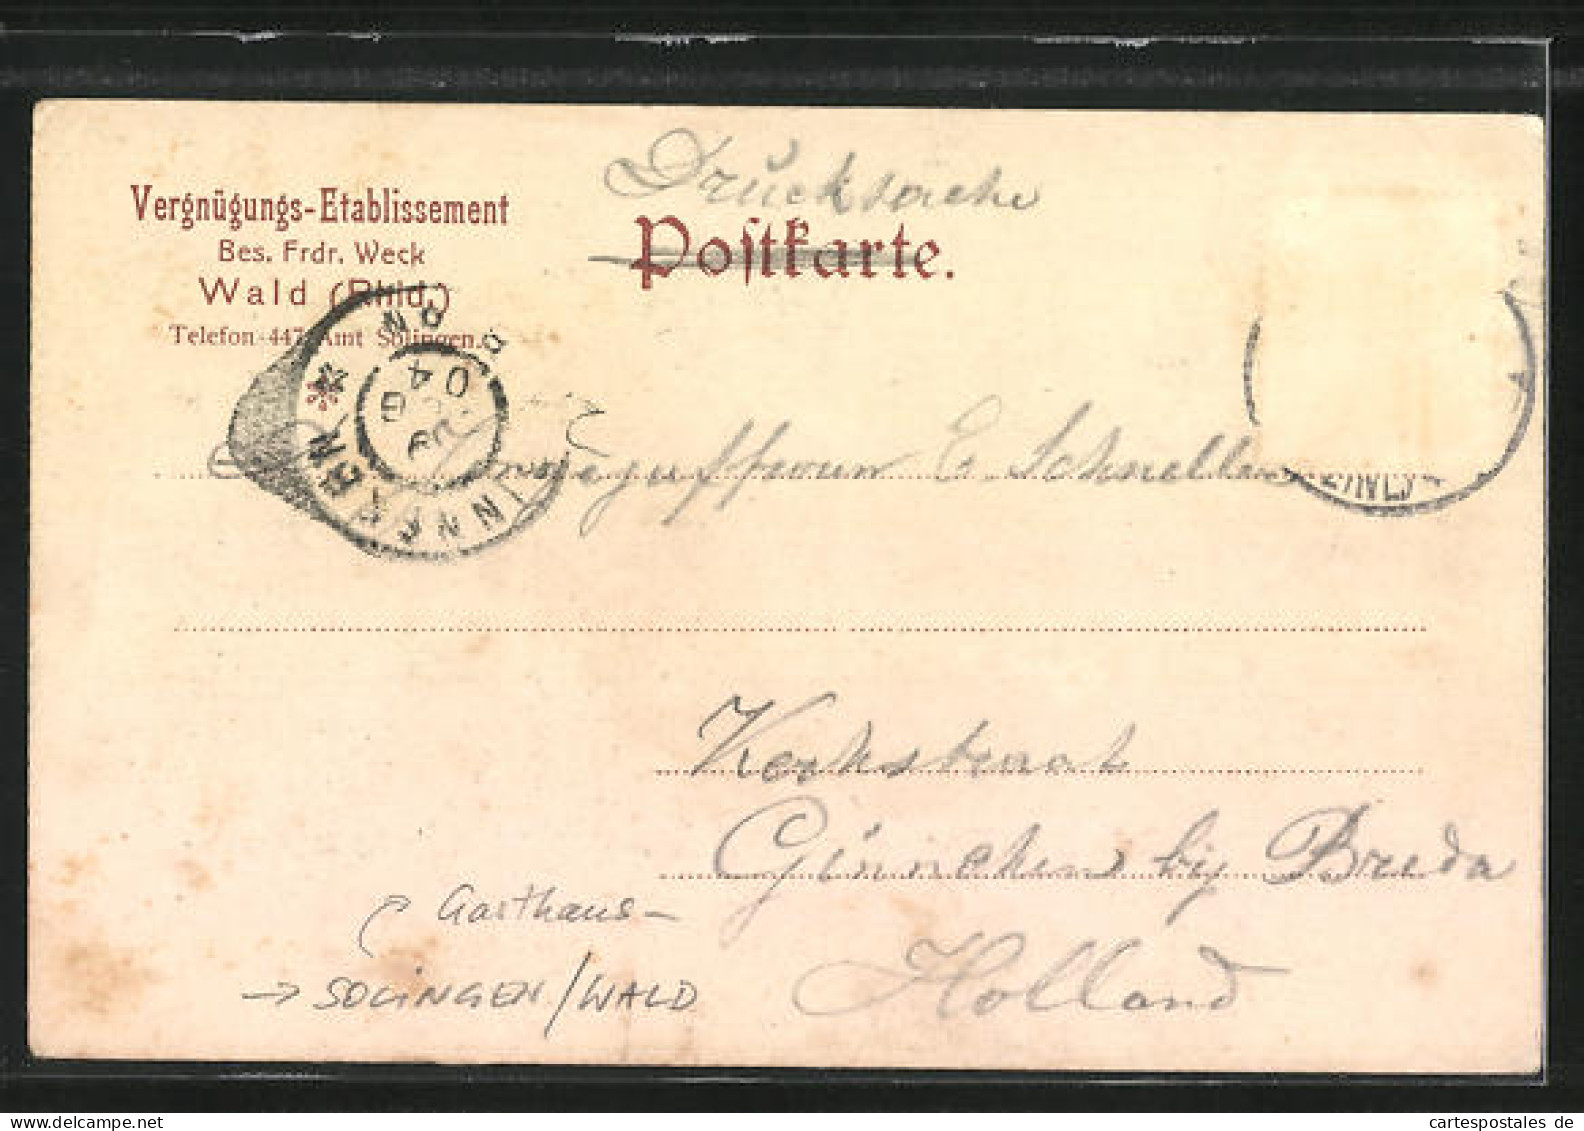 Vergnügungs-Etablissement
Bes. Frdr. Weck
Wald (Rhld.)
Telefon 447, Amt Solingen.
Drucksache
Postkarte.
GINNEKEN
04
E Schnellen
Kerkstraat
Ginneken bij Breda
Holland
Gasthaus-
→ SOLINGEN/WALD
cartespostales de